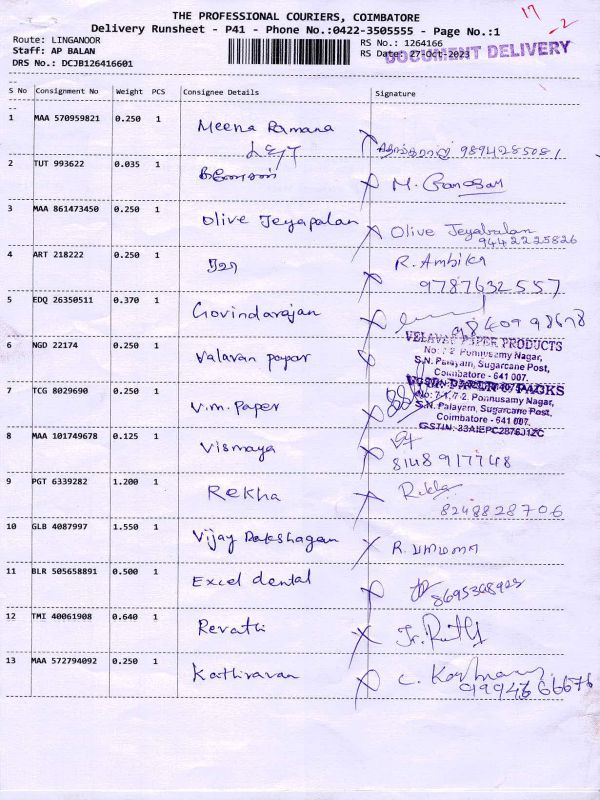 17
-2
THE PROFESSIONAL COURIERS, COIMBATORE
Delivery Runsheet - P41 - Phone No.:0422-3505555 - Page No.:1
Route: LINGANOOR
RS No.: 1264166
Staff: AP BALAN
RS Date: 27-Oct-2023
DOCUMENT DELIVERY
DRS No.: DCJB126416601
S No Consignment No Weight PCS Consignee Details Signature
1 MAA 570959821 0.250 1 Meena Ramana
9894285081
2 TUT 993622 0.035 1 M. Ganesan
3 MAA 861473450 0.250 1 Olive Jeyapalan Olive Jeyabalan
9442225826
4 ART 218222 0.250 1 R. Ambika
9787632557
5 EDQ 26350511 0.370 1 Govindarajan
9840998678
6 NGD 22174 0.250 1 Valavan papar
VELAVAN PAPER PRODUCTS
No: 7-2, Ponnusamy Nagar,
S.N. Palayam, Sugarcane Post,
Coimbatore - 641 007.
7 TCG 8029690 0.250 1 V.M. Paper
PAPER & PACKS
No: 7-1, 7-2. Ponnusamy Nagar,
S.N. Palayam, Sugarcane Post,
Coimbatore - 641 007.
GSTIN: 33AIEPC2876J1ZC
8 MAA 101749678 0.125 1 Vismaya
8148917748
9 PGT 6339282 1.200 1 Rekha Rekha
8248828706
10 GLB 4087997 1.550 1 Vijay Dakshagan
11 BLR 505658891 0.500 1 Excel dental
8695368925
12 TMI 40061908 0.640 1 Revathi
13 MAA 572794092 0.250 1 Kathiravan
9994666676